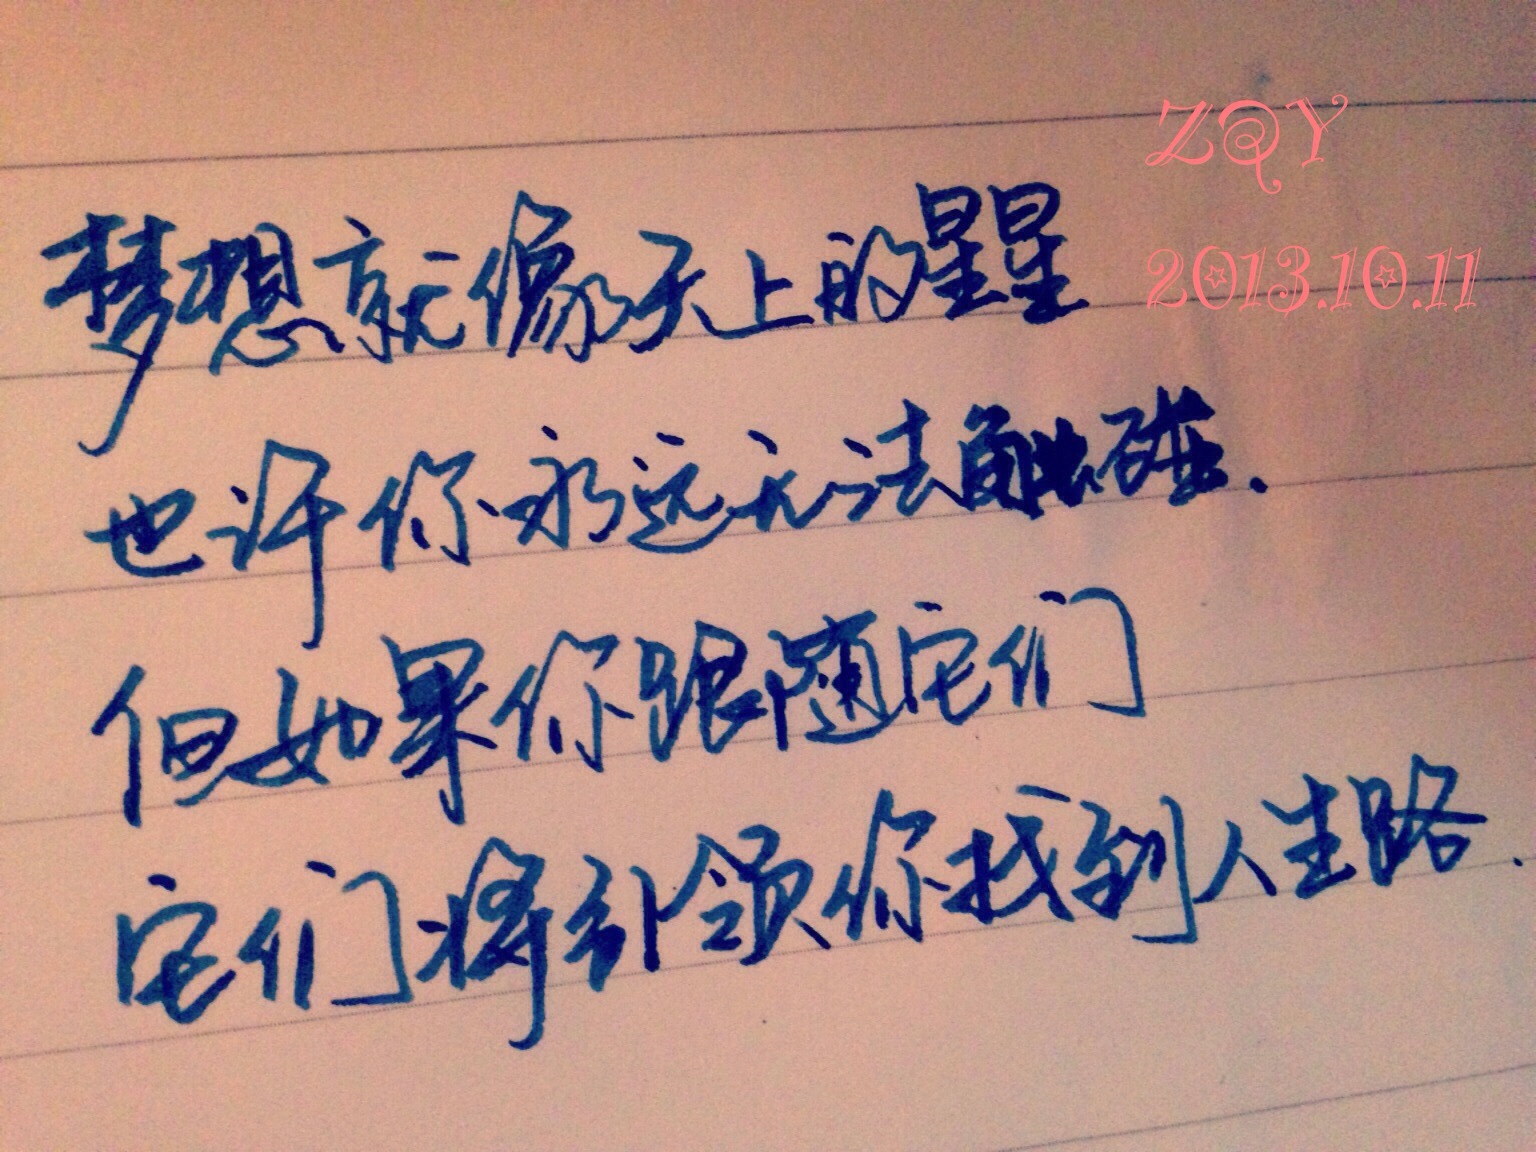 ZQY
2013.10.11
梦想就像天上的星星
也许你永远无法触碰.
但如果你跟随它们
它们将引领你找到人生路.